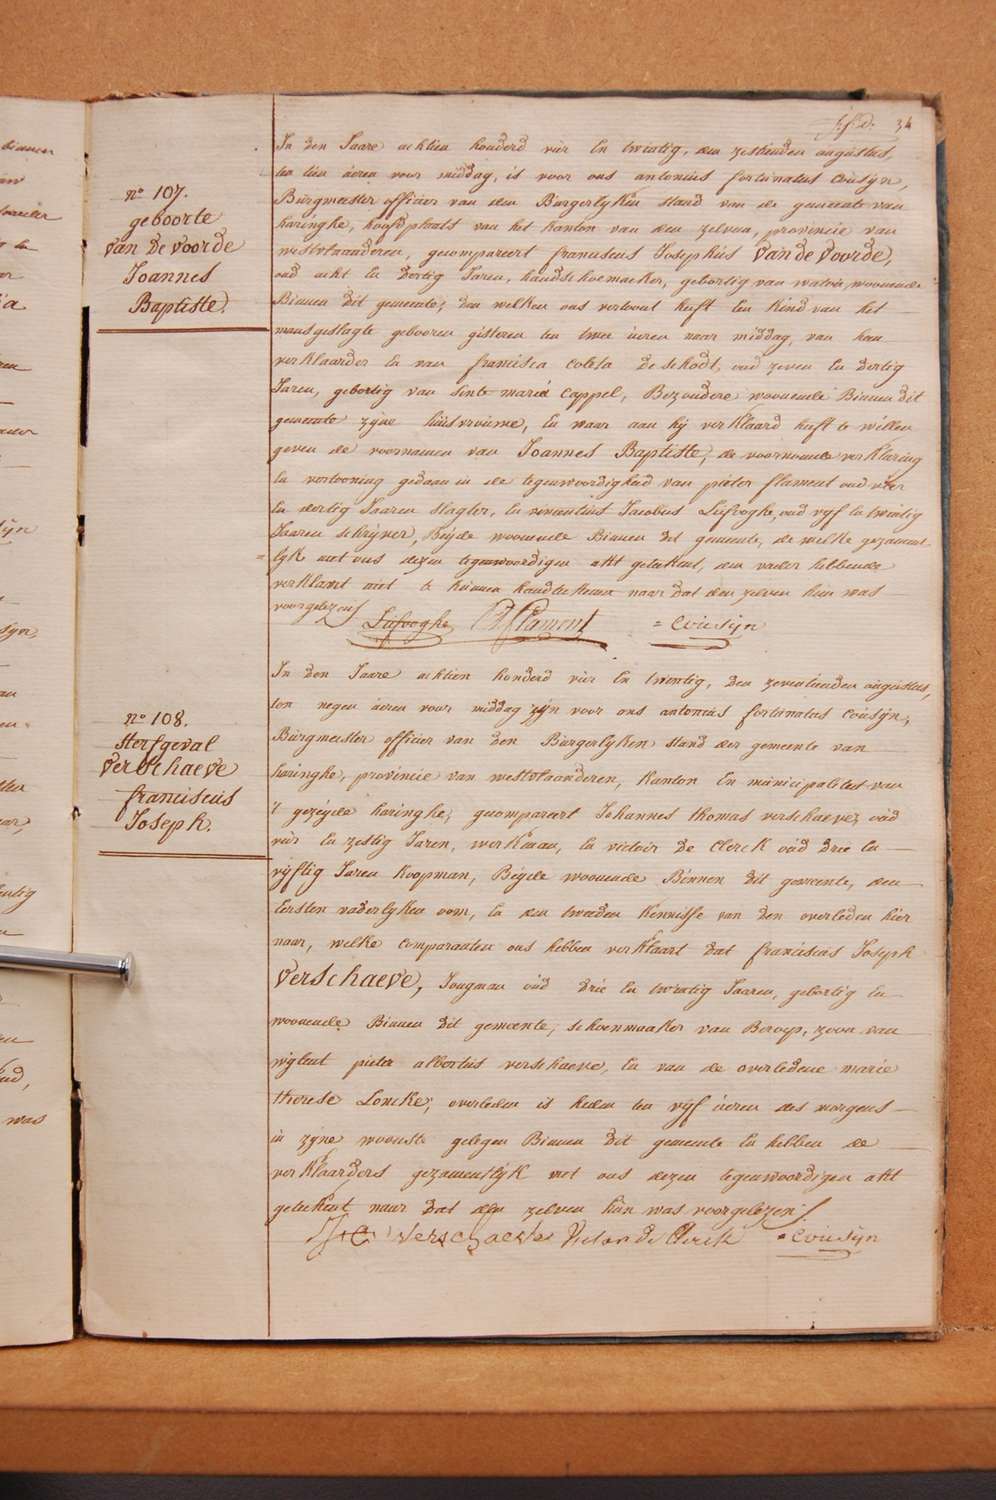 34
n° 107.
geboorte
van De voorde
Joannes
Baptiste.
In den Jaare achtien honderd vier En twintig, den zestienden augustus,
ten tien üeren voor middag, is voor ons antonius fortunatus Cousijn,
Burgmeister officier van den Burgerlyken stand van de gemeente van
haringhe, hoofdplaats van het kanton van den zelven, provincie van
westvlaanderen, gecompareert franciscus Josephus Van de Voorde,
oud acht En dertig Jaren, handschoemaeker, gebortig van watou, woonende
Binnen dit gemeente; den welken ons vertoont heeft Een kind van het
mansgeslagte gebooren gisteren ten twee üeren naar middag, van hem
verklaarder En van francisca coleta De schodt, oud zeven En dertig
Jaren, gebortig van sinte maria Cappel, Bezondere woonende Binnen dit
gemeente zyne huisvrouwe, En waar aan hy verklaard heeft te willen
geven de voornamen van Joannes Baptiste, de voornoemde verklaring
En vertooning gedaan in de tegenwoordigheid van pieter flament oud vier
En dertig Jaaren slagter, En Jacobus Liefooghe, oud vyf En twintig
Jaaren schryver, Beyde woonende Binnen dit gemeente, de welke gezament
= lyk met ons dezen tegenwoordigen akt getekent, den vader hebbende
verklaart niet te kunnen handteekenen naar dat den zelven hun was
voorgelezen
Liefooghe P. Flament = Cousijn
n° 108.
sterfgeval
verschaeve
franciscus
Joseph.
In den Jaare achtien honderd vier En twintig, den zeventienden augustus,
ten negen üeren voor middag zyn voor ons antonius fortunatus cousijn,
Burgmeister officier van den Burgerlyken stand der gemeente van
haringhe, provincie van westvlaanderen, Kanton En municipaliteit van
't gezegde haringhe, gecompareert Johannes thomas verschaeve, oud
vier En zestig Jaren, werkman, En victoir De Clerck oud drie En
vyftig Jaren koopman, Beyde woonende Binnen dit gemeente, den
Eersten vaderlyken oom, En den tweeden kennisse van den overleden hier
naar, welke comparaaten ons hebben verklaart dat franciscus Joseph
Verschaeve, Jongman oud drie En twintig Jaaren, gebortig En
woonende Binnen dit gemeente, schoenmaaker van Beroep, zoon van
wylent pieter albertus verschaeve, En van de overledene marie
therese Loncke; overleden is heden ten vyf üeren des morgens
in zyne wooninge gelegen Binnen dit gemeente En hebben de
verklaarders gezamentlyk met ons dezen tegenwoordigen akt
getekent naar dat den zelven hun was voorgelezen.
verschaeve Victor de Clerck = Cousijn